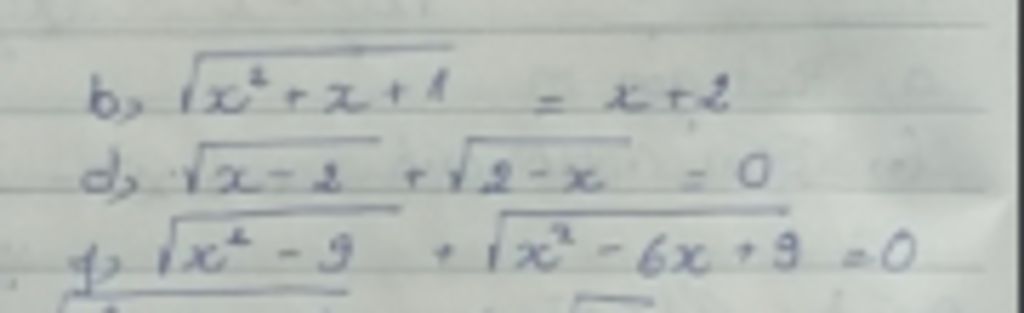 b, √(x² + x + 1) = x + 2
d, √(x - 2) + √(2 - x) = 0
f, √(x² - 9) + √(x² - 6x + 9) = 0